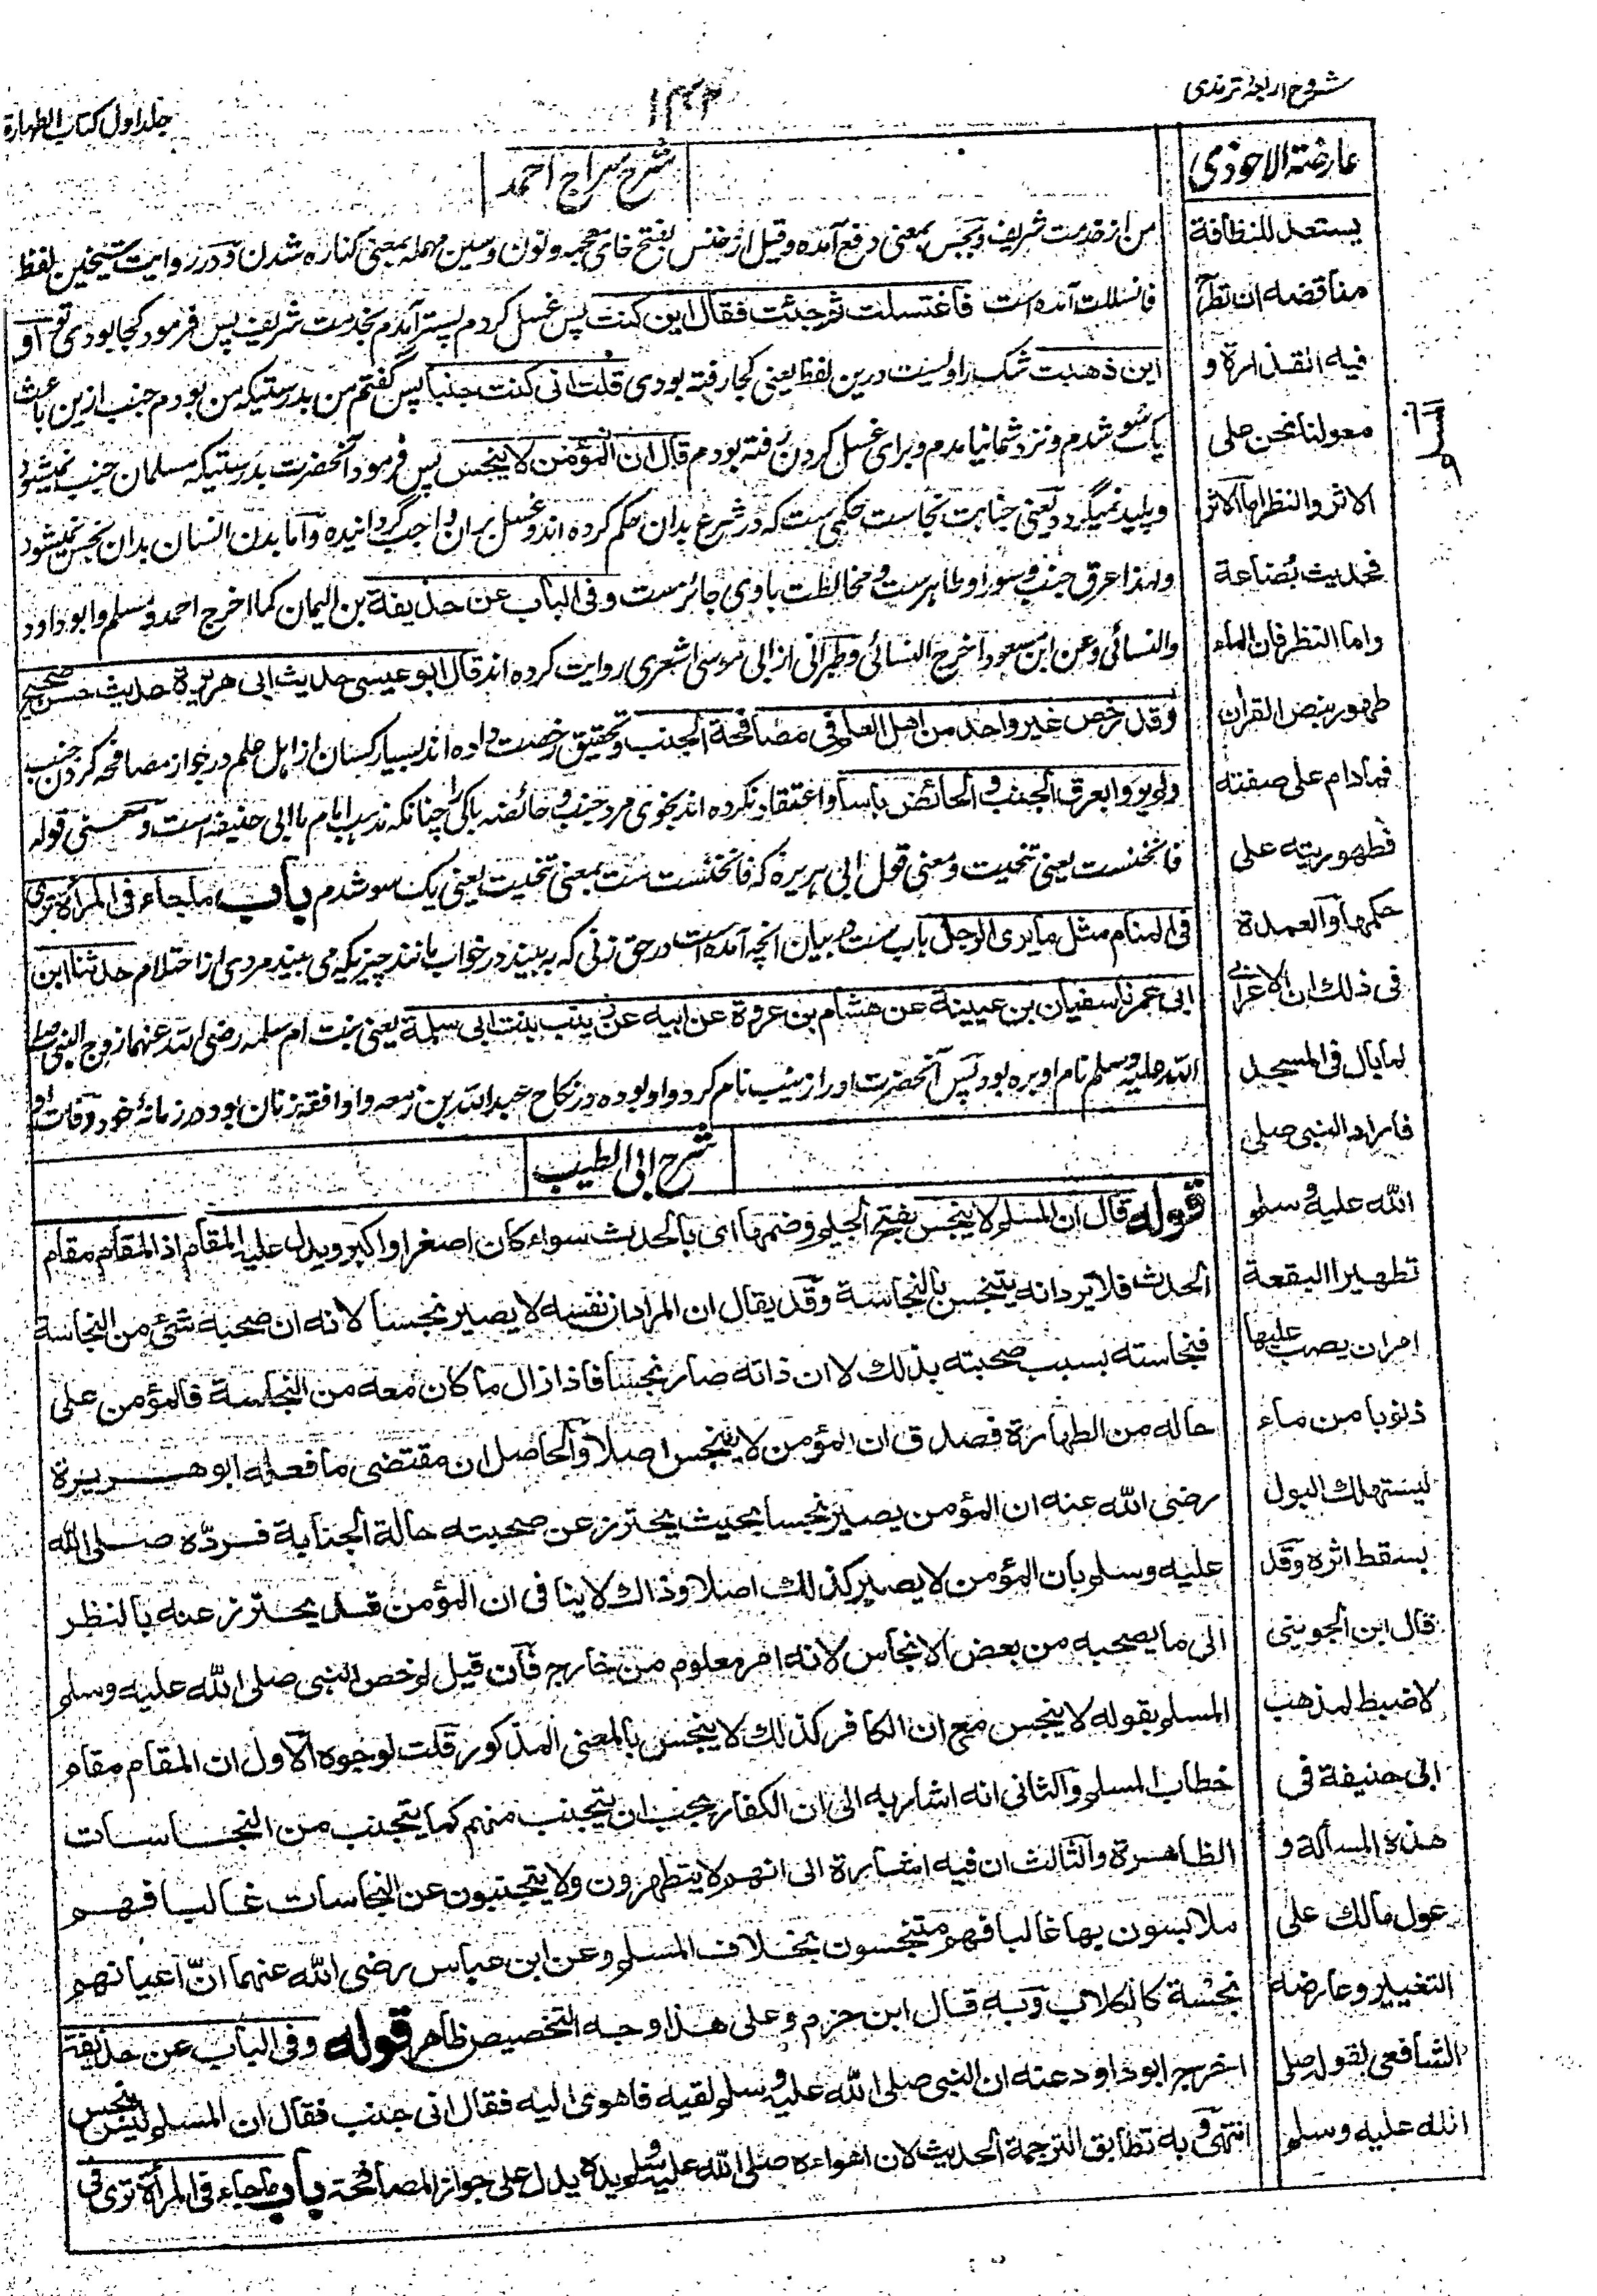 شروح اربعهٔ ترمذی
۱۳۲
جلد اول کتاب الطهارة
عارضة الاحوذی
یستعد للنظافة
مناقضه ان تطرح
فیه القذارة و
معولنا نحن علی
الاثر والنظر اما الاثر
فحدیث بضاعة
واما النظر فان الماء
طهور بنص القرآن
فمادام علی صفته
فطهوریته علی
حکمها والعمدة
فی ذلك ان الاعرابی
لما بال فی المسجد
فاراد النبی صلی
الله علیه وسلم
تطهیر البقعة
امر ان یصب علیها
ذنوبا من ماء
لیستهلك البول
بسقط اثره وقد
قال ابن الجوینی
لا ضبط لمذهب
ابی حنیفة فی
هذه المسألة و
عول مالك علی
التغییر وعارضه
الشافعی بقوله صلی
الله علیه وسلم
شرح سراج احمد
من از خدمت شریف و بجس بمعنی دفع آمده و قیل از خنس بفتح خای معجمه و نون و سین مهمله بمعنی کناره شدن و در روایت شیخین لفظ
فانسللت آمده است فاغتسلت ثم جئت فقال این کنت پس غسل کردم پستر آمدم بخدمت شریف پس فرمود کجا بودی تو او
این ذهبت شک راویست درین لفظ یعنی کجا رفته بودی قلت انی کنت جنبا پس گفتم من بدرستیکه من بودم جنب ازین باعث
یک سو شدم و نزد شما نیامدم و برای غسل کردن رفته بودم قال ان المؤمن لا ینجس پس فرمود آنحضرت بدرستیکه مسلمان جنب نمیشود
و پلید نمیگردد یعنی جنابت نجاست حکمی ست که در شرع بدان حکم کرده اند و غسل بران واجب گردانیده و اما بدن انسان بدان نجس نمیشود
و لهذا عرق جنب و سور او طاهرست و مخالطت باوی جائزست وفی الباب عن حذیفة بن الیمان کما اخرج احمد و مسلم و ابو داود
والنسائی وعن ابن مسعود اخرج النسائی و طبرانی از ابی موسی اشعری روایت کرده اند قال ابو عیسی حدیث ابی هریرة حدیث حسن صحیح
وقد رخص غیر واحد من اهل العلم فی مصافحة الجنب و تحقیق رخصت داده اند بسیار کسان از اهل علم در جواز مصافحه کردن جنب
ولم یروا بعرق الجنب والحائض بأسا و اعتقاد نکرده اند بخوی مرد جنب و حائضه باکی را چنانکه مذهب امام ما ابی حنیفه است و معنی قوله
فانخنست یعنی تنحیت و معنی قول ابی هریره که فانخنست ست بمعنی تنحیت یعنی یک سو شدم باب ما جاء فی المرأة تری
فی المنام مثل ما یری الرجل باب ست در بیان آنچه آمده است در حق زنی که به بیند در خواب مانند چیزیکه می بیند مردی از احتلام حدثنا ابن
ابی عمر نا سفیان بن عیینة عن هشام بن عروة عن ابیه عن زینب بنت ابی سلمة یعنی بنت ام سلمه رضی الله عنهما زوج النبی صلی
الله علیه وسلم نام او بره بود پس آنحضرت او را زینب نام کرد و او بوده در نکاح عبد الله بن زمعه و او افقه زنان بود در زمانهٔ خود وفات او
شرح ابی الطیب
قوله قال ان المسلم لا ینجس بفتح الجیم وضمها ای بالحدث سواء کان اصغر او اکبر ویدل علیه المقام اذ المقام مقام
الحدث فلا یرد انه یتنجس بالنجاسة وقد یقال ان المراد ان نفسه لا یصیر نجسا لانه ان صحبه شیء من النجاسة
فنجاسته بسبب صحبته بذلك لا ان ذاته صار نجسا فاذا زال ما کان معه من النجاسة فالمؤمن علی
حاله من الطهارة فصدق ان المؤمن لا ینجس اصلا والحاصل ان مقتضی ما فعله ابو هریرة
رضی الله عنه ان المؤمن یصیر نجسا بحیث یحترز عن صحبته حالة الجنابة فردّه صلی الله
علیه وسلم بان المؤمن لا یصیر كذلك اصلا وذاك لا ینافی ان المؤمن قد یحترز عنه بالنظر
الی ما یصحبه من بعض الانجاس لانه امر معلوم من خارج فان قیل لم خص النبی صلی الله علیه وسلم
المسلم بقوله لا ینجس مع ان الکافر كذلك لا ینجس بالمعنی المذکور قلت لوجوه الاول ان المقام مقام
خطاب المسلم والثانی انه اشار به الی ان الکفار یجب ان یتجنب منهم کما یتجنب من النجاسات
الظاهرة والثالث ان فیه اشارة الی انهم لا یتطهرون ولا یتجنبون عن النجاسات غالبا فهم
ملابسون بها غالبا فهم متنجسون بخلاف المسلم وعن ابن عباس رضی الله عنهما انّ اعیانهم
نجسة کالکلاب وبه قال ابن حزم وعلی هذا وجه التخصیص ظاهر قوله وفی الباب عن حذیفة
اخرج ابو داود عنه ان النبی صلی الله علیه وسلم لقیه فاهوی الیه فقال انی جنب فقال ان المسلم لیس بنجس
انتهی وبه تطابق الترجمة الحدیث لان اهواءه صلی الله علیه وسلم یده یدل علی جواز المصافحة باب ما جاء فی المرأة تری فی